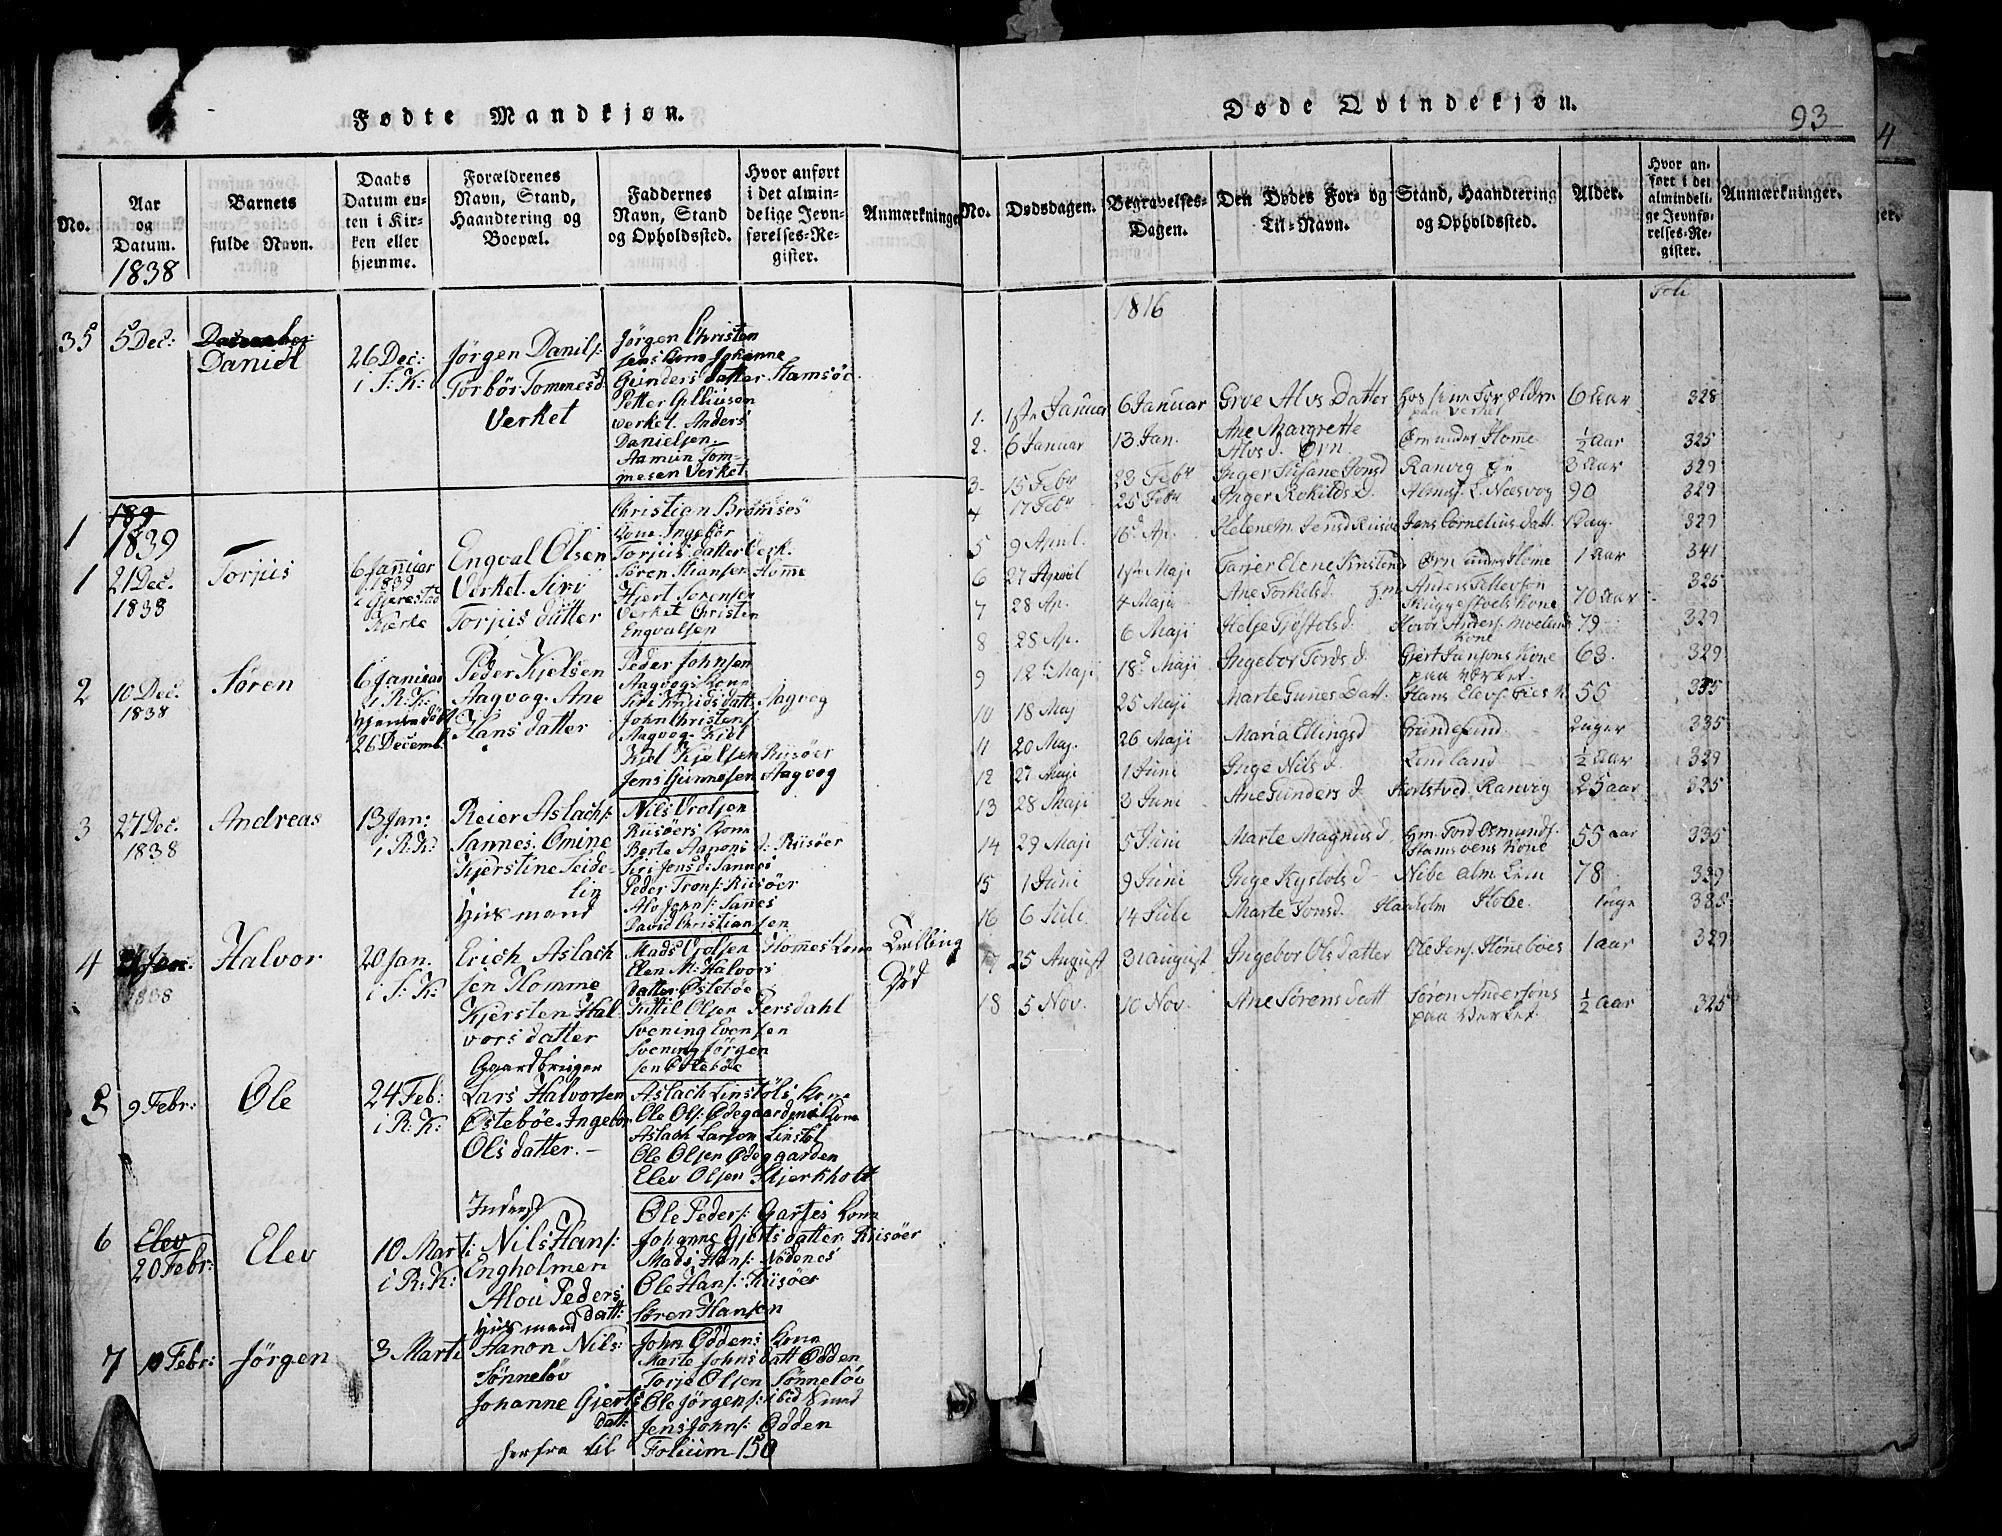 Fødte Mandkjøn.
No.
Aar og Datum.
1838
Barnets fulde Navn.
Daabs Datum enten i Kirken eller hjemme.
Forældrenes Navn, Stand, Haandtering og Boepæl.
Faddernes Navn, Stand og Opholdssted.
Hvor anført i det almindelige Jevnførelses-Register.
Anmærkninger
35 5 Dec: Daniel
26 Dec: i S: K:
Jørgen Danils:
Torbör Tommesd.
Verket
Jørgen Christen
sens Kone Johanne
Gunders datter Hamsöe
Petter
Verket. Anders
Danielsen.
Aamun Tom-
mesen Verket
1 1839
1 21 Dec. 1838
Torjus
6 Januar 1839 i Gjerestad Kierke
Engval Olsen
Verket. Siri
Torjus datter
Christian Bromsøs
Kone Ingebör
Torjus datter Verk.
Søren Stiansen Homme
Hjert Sørensen
Verket Christen
Engvalsen
2 10 Dec. 1838
Søren
6 Januar i R: K:
hjemmedöbt
26 Decemb.
Peder Kjelsen
Aagvog. Ane
Hans datter
Peder Johnsen
Aagvogs Kone
Siri Knuds datt. Aagvog
John Christens:
Aagvog. Kiel
Kiel Kjelsen Riisöer
Jens Gunnesen Aagvog
3 27 Dec. 1838
Andreas
13 Jan: i R: K:
Reier Aslachs:
Sannes. Omine
Kjerstine Seide-
lin
Husmand
Nils Vrolsen
Riisöers Kone
Berte Aanons d. Riisöer
Siri Jens d. Sannes
Peder Trons: Riisöer
Alo Johns: Sanes
David Christiansen
4 1838
Halvor
20 Jan. i S: K:
Erich Aslach
sen Homme
Kjersten Hal-
vors datter
Gaardbruger
Mads Vrolsen Hommes Kone
Elen M. Halvors
datter Östeböe
Kittil Olsen Persdahl
Svening Evensen
Svening Jørgen
sen Östeböe
Tvilling
Död
5 9 Febr:
Ole
24 Feb: i R: K:
Lars Halvorsen
Østeböe. Ingebor
Ols datter. –
Aslach Linstöls Kone
Ole Ols: Ödegaardens Kone
Aslach Larson Linstöl
Ole Olsen Ödegaarden
Elev Olsen Skjerkholt
6 Elev 20 Febr:
Elev
10 Marti: i R: K:
Inderst
Nils Hans:
Engholmen
Alou Peders datt:
Husmand
Ole Peders: Garses Kone
Johanne Gjerts datter Riisöer
Mads Hans: Nödenes
Ole Hans: Riisöer
Søren Hansen
7 Febr:
Jørgen
3 Marti
Hanon Nils:
Sönnelöv
Johanne Gjerts datt:
John Öddens Kone
Marte Johns datt Ödden
Torje Olsen Sönnelöv
Ole Jörgens:
Jens Johns: Ödden
herfra til Folium 150
Døde Qvindekjøn.
93
No.
Dødsdagen.
Begravelses-Dagen.
Den Dødes For- og Til-Navn.
Stand, Haandtering og Opholdssted.
Alder.
Hvor anført i det almindelige Jevnførelses-Register.
Anmærkninger.
1816
Foli
1. 1ste Januar 6 Januar Groe Alvs Datter Hos sine Forældre paa Verket 6 aar 328
2. 6 Januar 13 Jan. Ane Margrette Alvs d. Ørn Ørn under Home ½ Aar 325
3. 15 Febr 23 Febr Inger Susane Jonsd Ranvig 3 aar 329
4 17 Febr 25 Febr Inger Rokilds d. Almsl. Næsvog 90 329
5 9 April. 16d Ap. Helene M. Jensd Riisöe Jens Cornelius Datt. 1 Dag. 329
6 27 April 1ste Maji Tarjer Elene Kinstend Ørn under Home 1 aar 341
7 28 Ap. 4 Maji Ane Torkels d. Hm. Anders Tellevsen Kone 70 aar 325
8 28 Ap. 6 Maji Helje Gjöstols d. Havor Anders: Moelands Kone 79 329
9 12t Maji 18d Maji Ingebor Tords d. Gjert Jansons Kone paa Værket 63. 329
10 18 Maj 25 Maji Marte Gunes Datt. Hans Elevs: 55 335
11 20 Maj. 26 Maji Maria Ellingsd Gundersund 2 uger 335
12 27 Maji 1 Juni Inge Nils d. Lindland ½ aar 329
13 28 Maji 2 Juni Ane Gunders d. Ranvig 25 aar 325
14 29 Maji 5 Juni Marte Magnus d. Hm. Tord Osmunds: Hamsöens Kone 55 aar 335
15 1 Juni 9 Juni Inge Kystols d– Nibe alm. Lem 78 329
16 6 Juli 14 Juli Marte Jonsd. Haaholm Hobe. 1 uge 325
17 25 August 31 august Ingebor Ols datter Ole Jens: Hönebóes 1 aar 329
18 5 Nov. 10 Nov. Ane Sörens Datt Søren Andersøns paa Værket. ½ aar 325